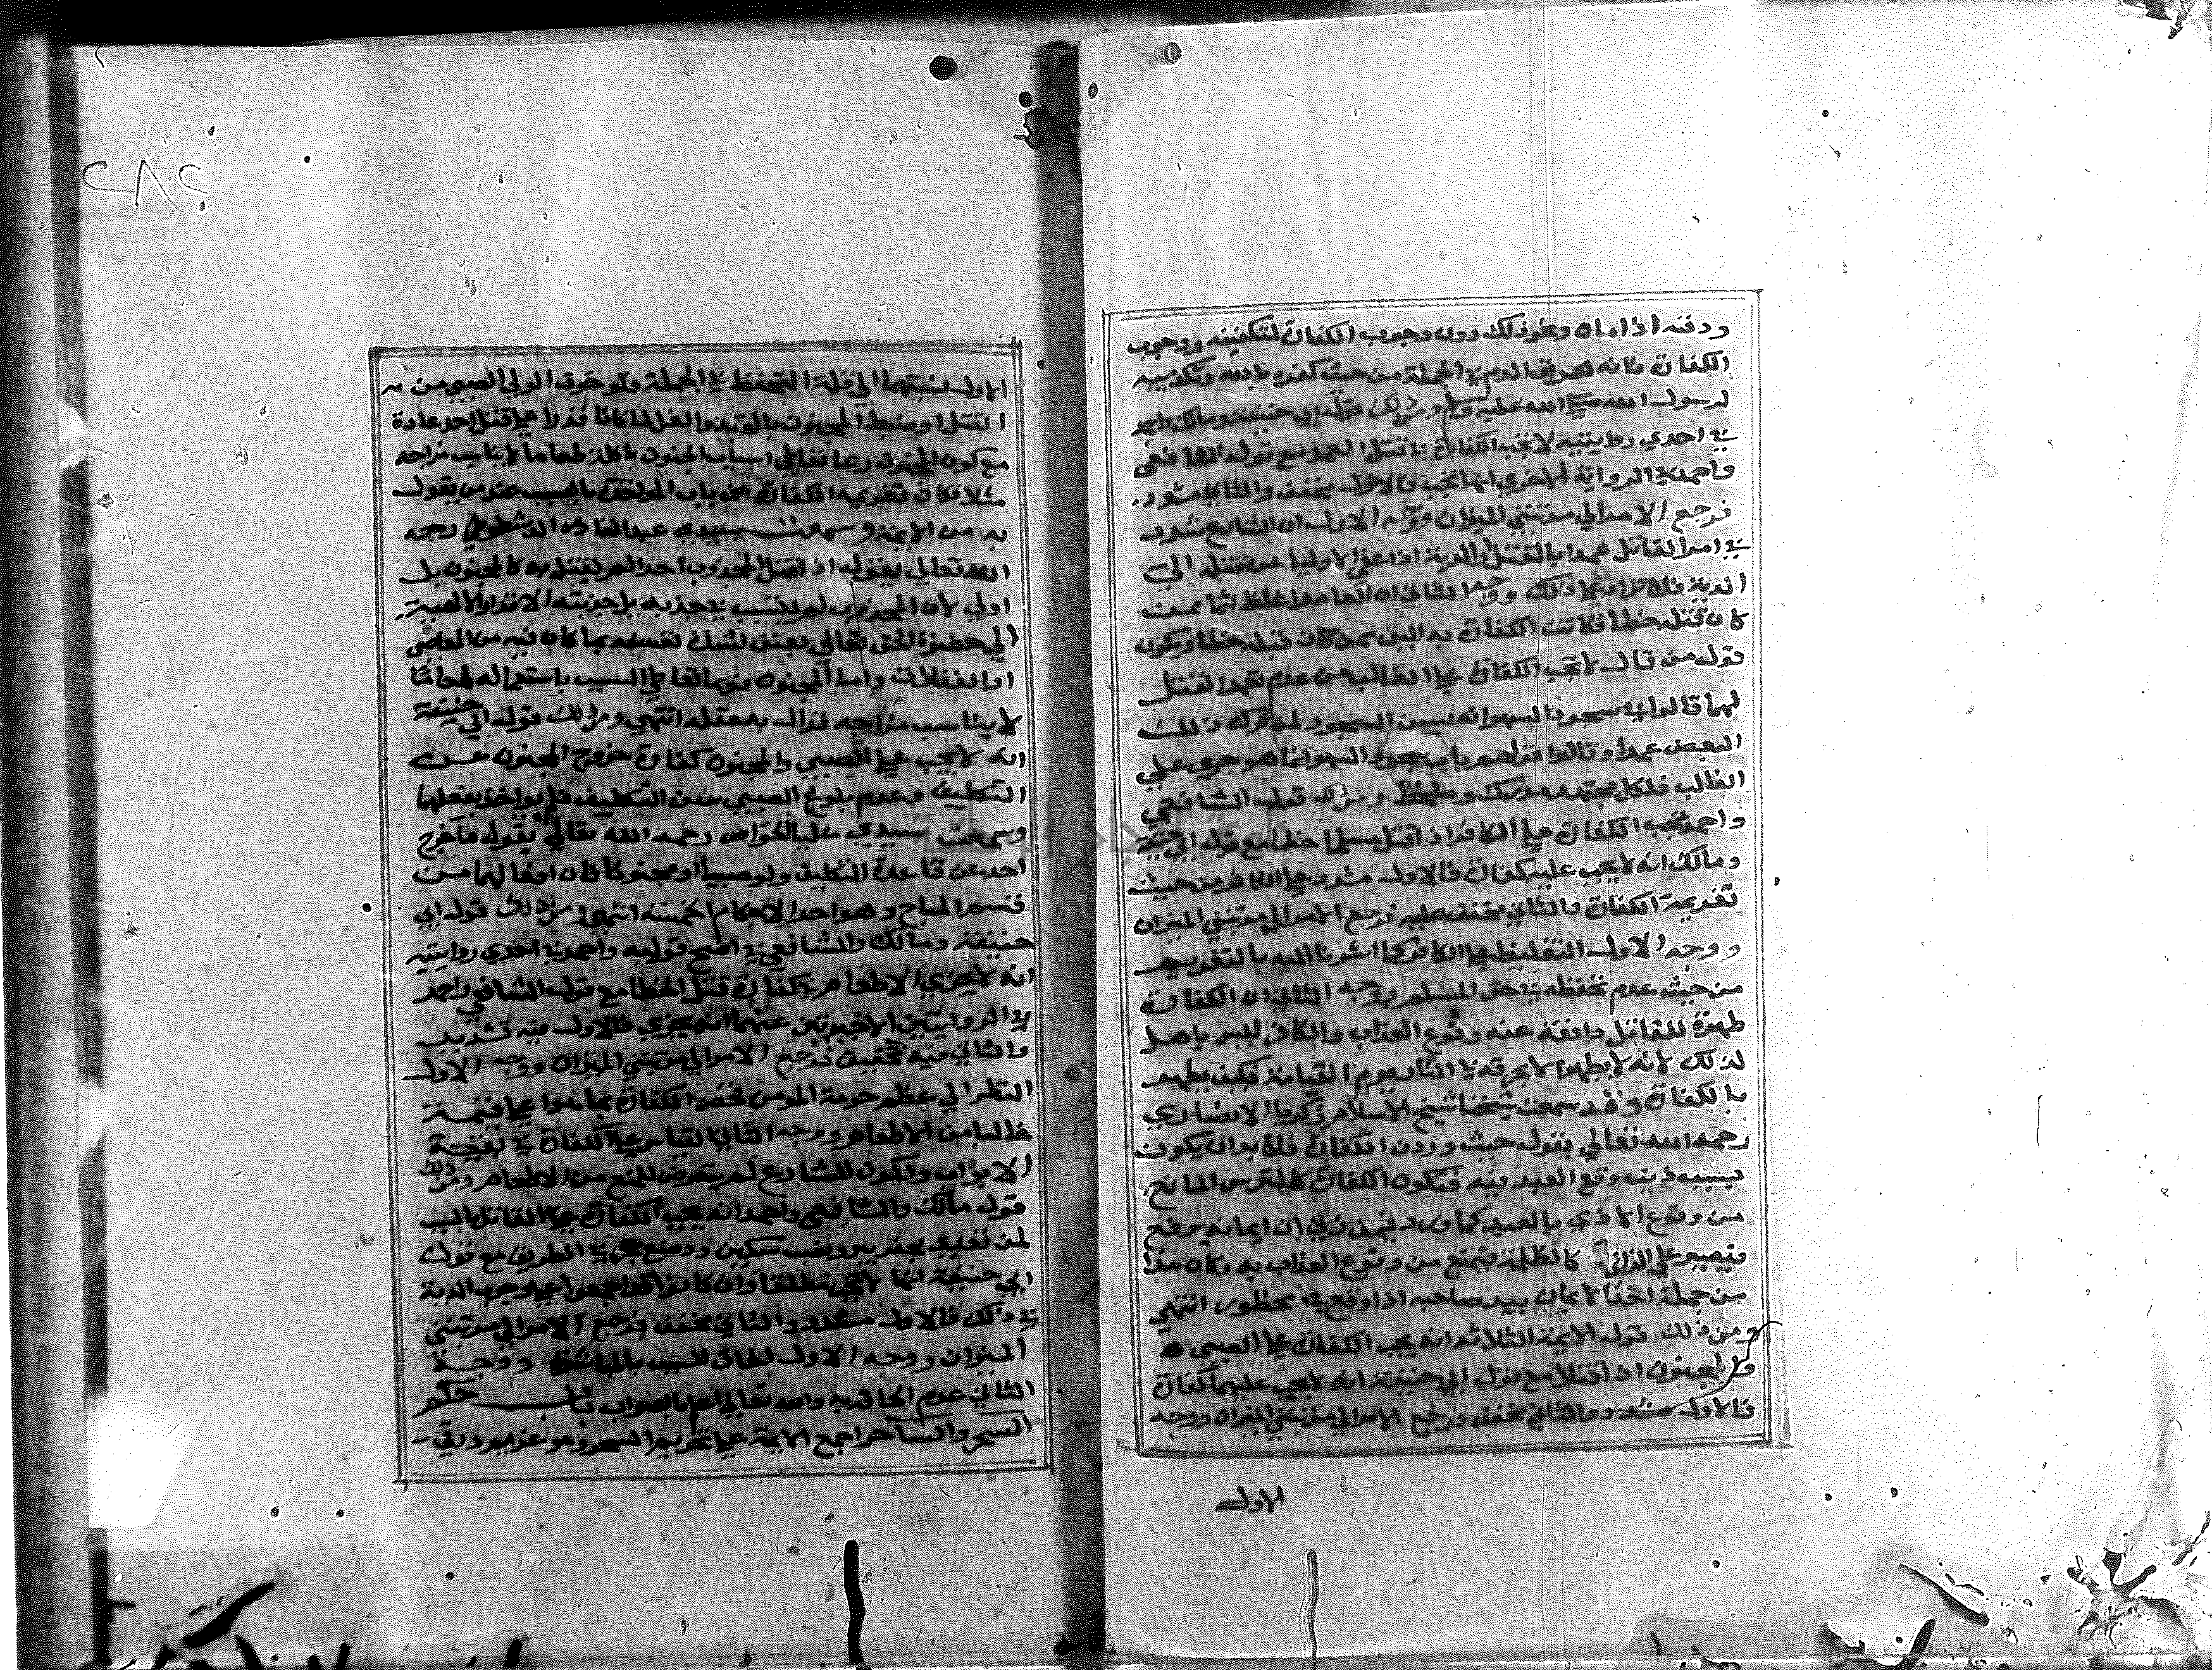 ودفنه اذا مات ونحو ذلك دون وجوب الكفارة لتكفينه ووجوب
الكفارة فانه مهدر الدم في الجملة من حيث كفره بالله وتكذيبه
لرسول الله صلى الله عليه وسلم ومن ذلك قول ابي حنيفة ومالك واحمد
في احدي روايتيه لا تجب الكفارة في قتل العمد مع قول الشافعي
واحمد في الرواية الاخري انها تجب فالاول مخفف والثاني مشدد
فرجع الامر الي مرتبتي الميزان ووجه الاول ان الشارع شدد
في امر القاتل عمدا بالقتل او الدية اذا عفي الاوليا عن قتله الي
الدية فلا نزاد علي ذلك ووجه الثاني ان العامد اغلظ اثما ممن
كان قتله خطا فكانت الكفارة به اليق ممن كان قتله خطا ويكون
قول من قال لا تجب الكفارة علي الغالب من عدم تعمد القتل
لهما قالوا في سجود السهو انه يسن السجود لمن ترك ذلك
البعض عمدا وقالوا قولهم باب سجود السهو انما هو جري علي
الغالب فلكل مجتهد مدرك وملحظ ومن ذلك قول الشافعي
واحمد تجب الكفارة علي الكافر اذا قتل مسلما خطا مع قول ابي حنيفة
ومالك انه لا يجب عليه كفارة فالاول مشدد علي الكافر من حيث
تغريمه الكفارة والثاني مخفف عليه فرجع الامر الي مرتبتي الميزان
ووجه الاول التغليظ علي الكافر كما اشرنا اليه بالتغريم
من حيث عدم تحفظه في حق المسلم ووجه الثاني ان الكفارة
طهرة للقاتل دافعة عنه وقوع العذاب والكافر ليس باهل
لذلك لانه لا يطهر الا بحرقه في النار يوم القيامة فكيف يطهر
بالكفارة وقد سمعت شيخنا شيخ الاسلام زكريا الانصاري
رحمه الله تعالي يقول حيث وردت الكفارة فلا بد ان يكون
بسبب ذنب وقع العبد فيه فتكون الكفارة كالترس المانع
من وقوع الاذي بالعبد كما ورد فيمن زني ان ايمانه يرفع
فيصير علي الزاني كالظلة فيمنع من وقوع العذاب به فكان هذا
من جملة اخذ الايمان بيد صاحبه اذا وقع في محظور انتهي
ومن ذلك قول الايمة الثلاثة انه يجب الكفارة علي الصبي
والمجنون اذا قتلا مع قول ابي حنيفة انه لا يجب عليهما كفارة
فالاول مشدد والثاني مخفف فرجع الامر الي مرتبتي الميزان ووجه
الاول
٢٨٢
الاول نسبتهما الي قلة التحفظ في الجملة ولو خوف الولي الصبي من
القتل او ضبط المجنون بالقيد والغل لما كانا قدرا علي قتل احد عادة
مع كون المجنون ربما تعاطي اسباب الجنون باكله طعاما لا يناسب مزاجه
مثلا فكان تغريمه الكفارة من باب المواخذة بالسبب عند من يقول
به من الايمة وسمعت سيدي عبد القادر الدشطوطي رحمه
الله تعالي يقول اذا قتل المجذوب احدا لم يقتل به كالمجنون بل
اولي لان المجذوب لم يتسبب في جذبه
الي حضرة الحق تعالي
او الغفلات واما المجنون فربما تعاطي السبب باستعماله طعاما
لا يناسب مزاجه فزال به عقله انتهي ومن ذلك قول ابي حنيفة
انه لا يجب علي الصبي والمجنون كفارة خروج المجنون عن
التكليف وعدم بلوغ الصبي سن التكليف فلا يواخذ بفعلهما
وسمعت سيدي عليا الخواص رحمه الله تعالي يقول ما خرج
احد عن قاعدة التكليف ولو صبيا او مجنونا فان افعالهما من
قسم المباح وهو احد الاحكام الخمسة انتهي ومن ذلك قول ابي
حنيفة ومالك والشافعي في اصح قوليه واحمد في احدي روايتيه
انه لا يجزي الاطعام في كفارة قتل الخطا مع قول الشافعي واحمد
في الروايتين الاخيرتين عنهما انه يجزي فالاول فيه تشديد
والثاني فيه تخفيف فرجع الامر الي مرتبتي الميزان ووجه الاول
النظر الي عظم حرمة المومن فخص الكفارة بما هو اعلي قيمة
غالبا من الاطعام ووجه الثاني القياس علي الكفارة في بقية
الابواب ولكون الشارع لم يتعرض للمنع من الاطعام ومن ذلك
قول مالك والشافعي واحمد انه يجب الكفارة علي القاتل بالسبب
لمن تعدي بحفر بير ونصب سكين ووضع حجر في الطريق مع قول
ابي حنيفة انها لا تجب مطلقا وان كانوا قد اجمعوا علي وجوب الدية
في ذلك فالاول مشدد والثاني مخفف فرجع الامر الي مرتبتي
الميزان ووجه الاول الحاق السبب بالمباشرة ووجه
الثاني عدم الحاقه به والله تعالي اعلم بالصواب باب حكم
السحر والساحر اجمع الايمة علي تحريم السحر وهو عزايم ورقي